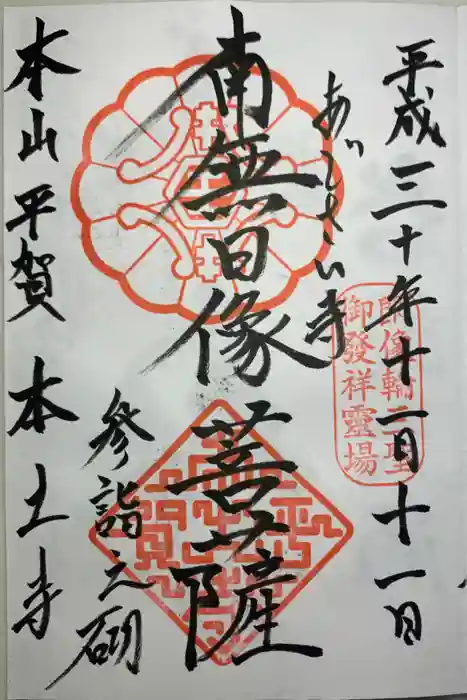 平成三十年十一月十一日
郎像輪三聖
御發祥靈場
あぢさい寺
南無日像菩薩
参詣之砌
本山平賀本土寺